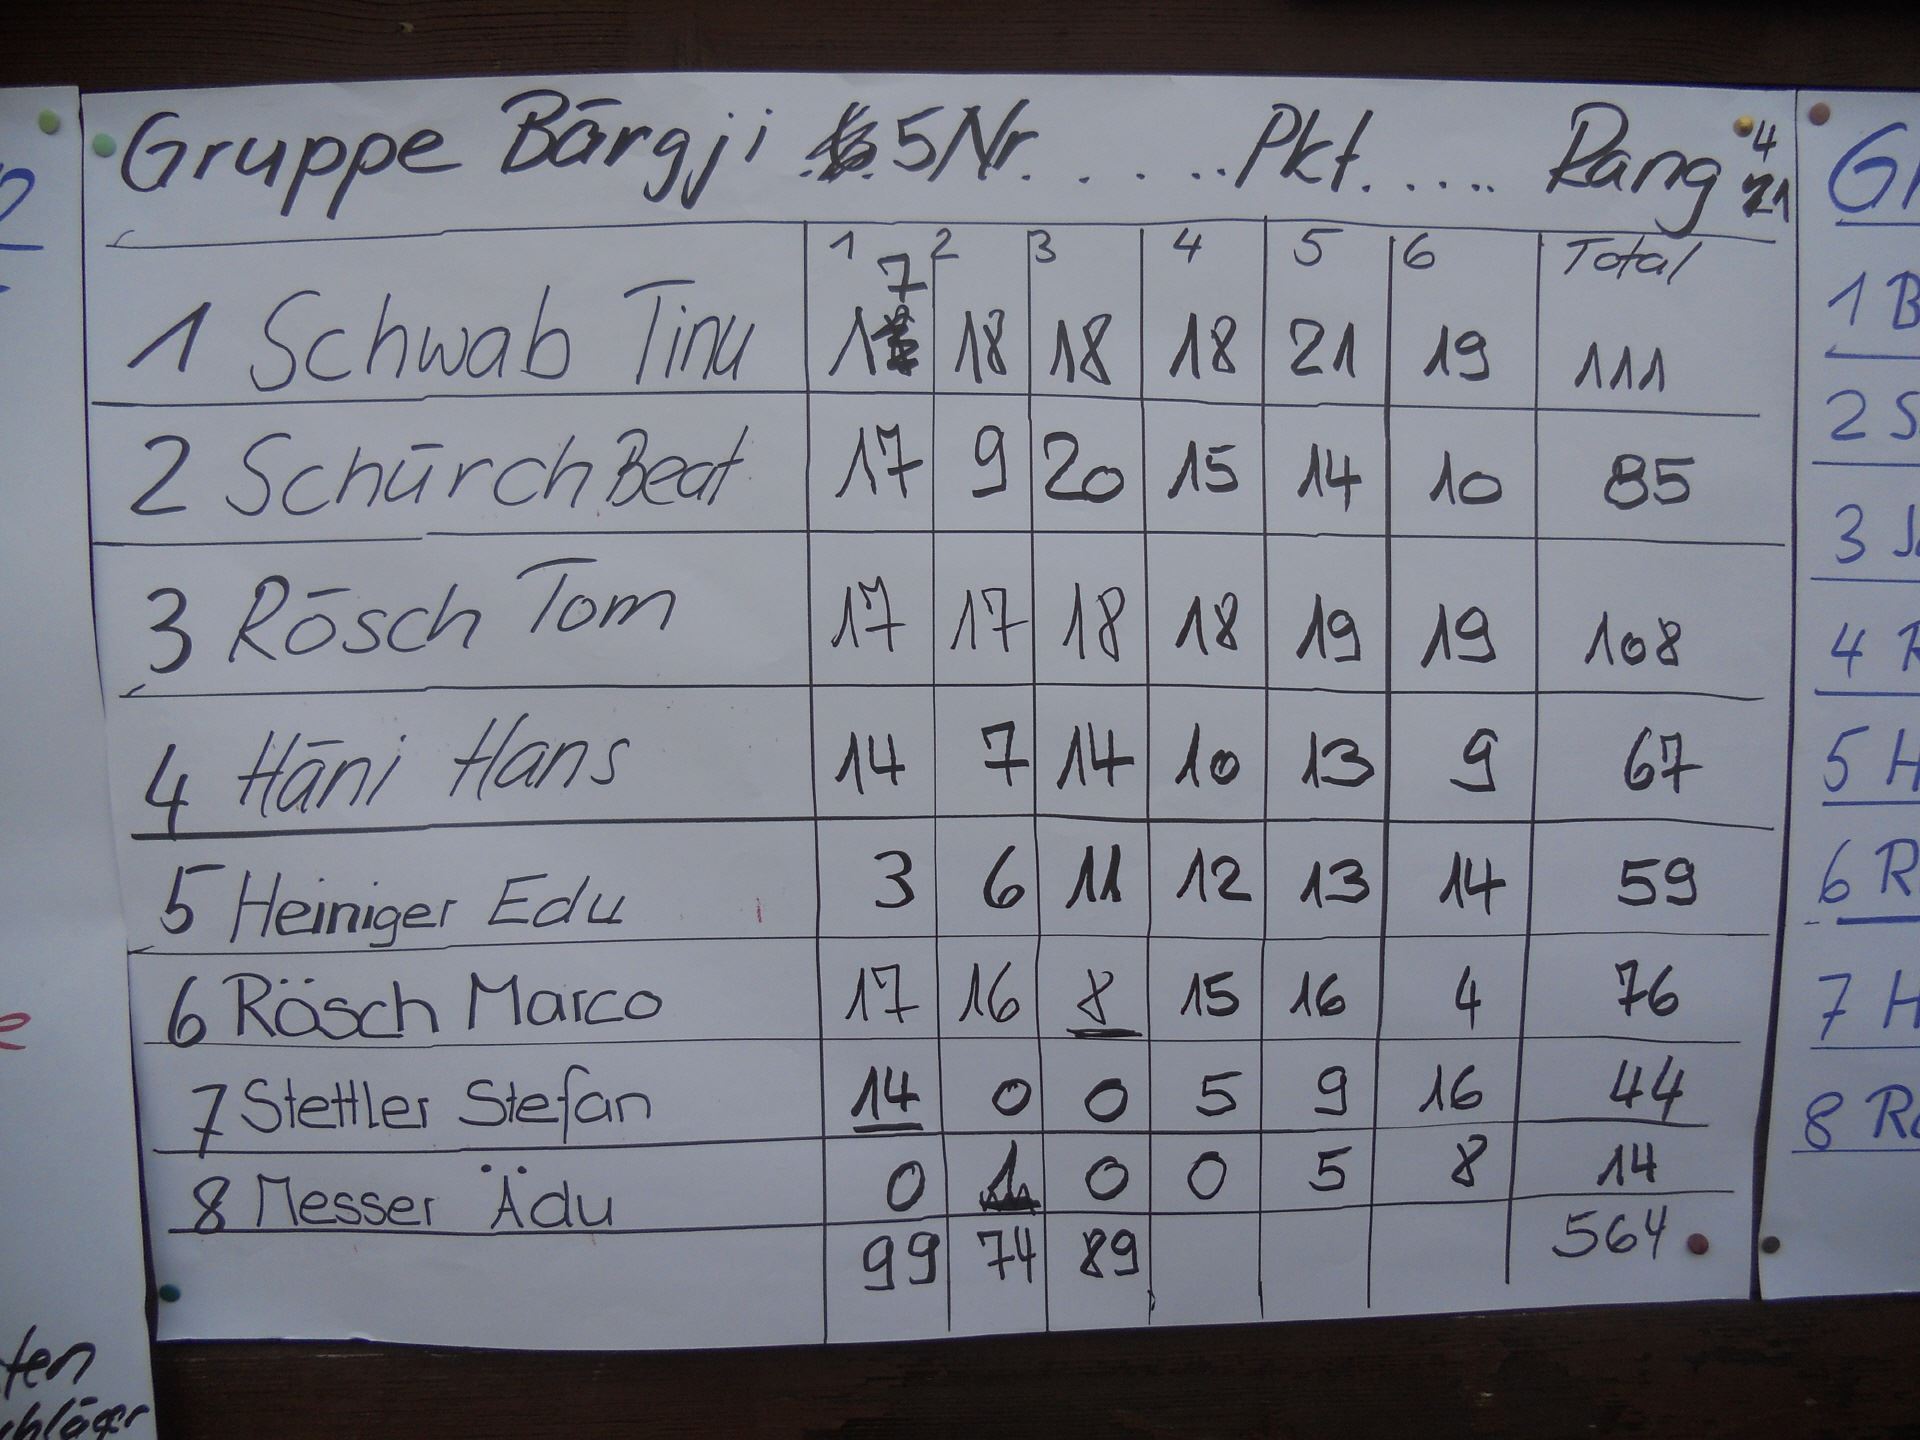 Gruppe Bārgji 5 Nr. . . . . . Pkt. . . . . . Rang 4
21
1 2 3 4 5 6 Total
7
1 Schwab Tinu 1 18 18 18 21 19 111
2 Schūrch Beat 17 9 20 15 14 10 85
3 Rōsch Tom 17 17 18 18 19 19 108
4 Hāni Hans 14 7 14 10 13 9 67
5 Heiniger Edu 3 6 11 12 13 14 59
6 Rösch Marco 17 16 8 15 16 4 76
7 Stettler Stefan 14 0 0 5 9 16 44
8 Messer Ädu 0 1 0 0 5 8 14
99 74 89 564
2
e
ten
chläger
G
1 B
2 S
3
4 R
5 H
6 R
7 H
8 Rö